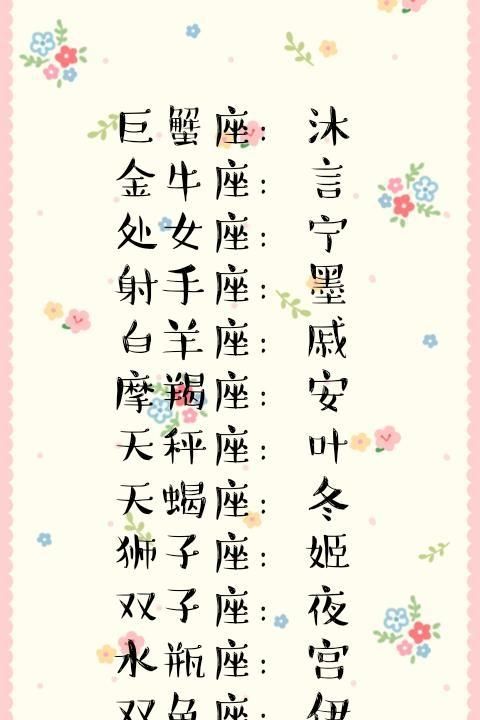 巨蟹座： 沐
金牛座： 言
处女座： 宁
射手座： 墨
白羊座： 戚
摩羯座： 安
天秤座： 叶
天蝎座： 冬
狮子座： 姬
双子座： 夜
水瓶座： 宫
双鱼座： 伊